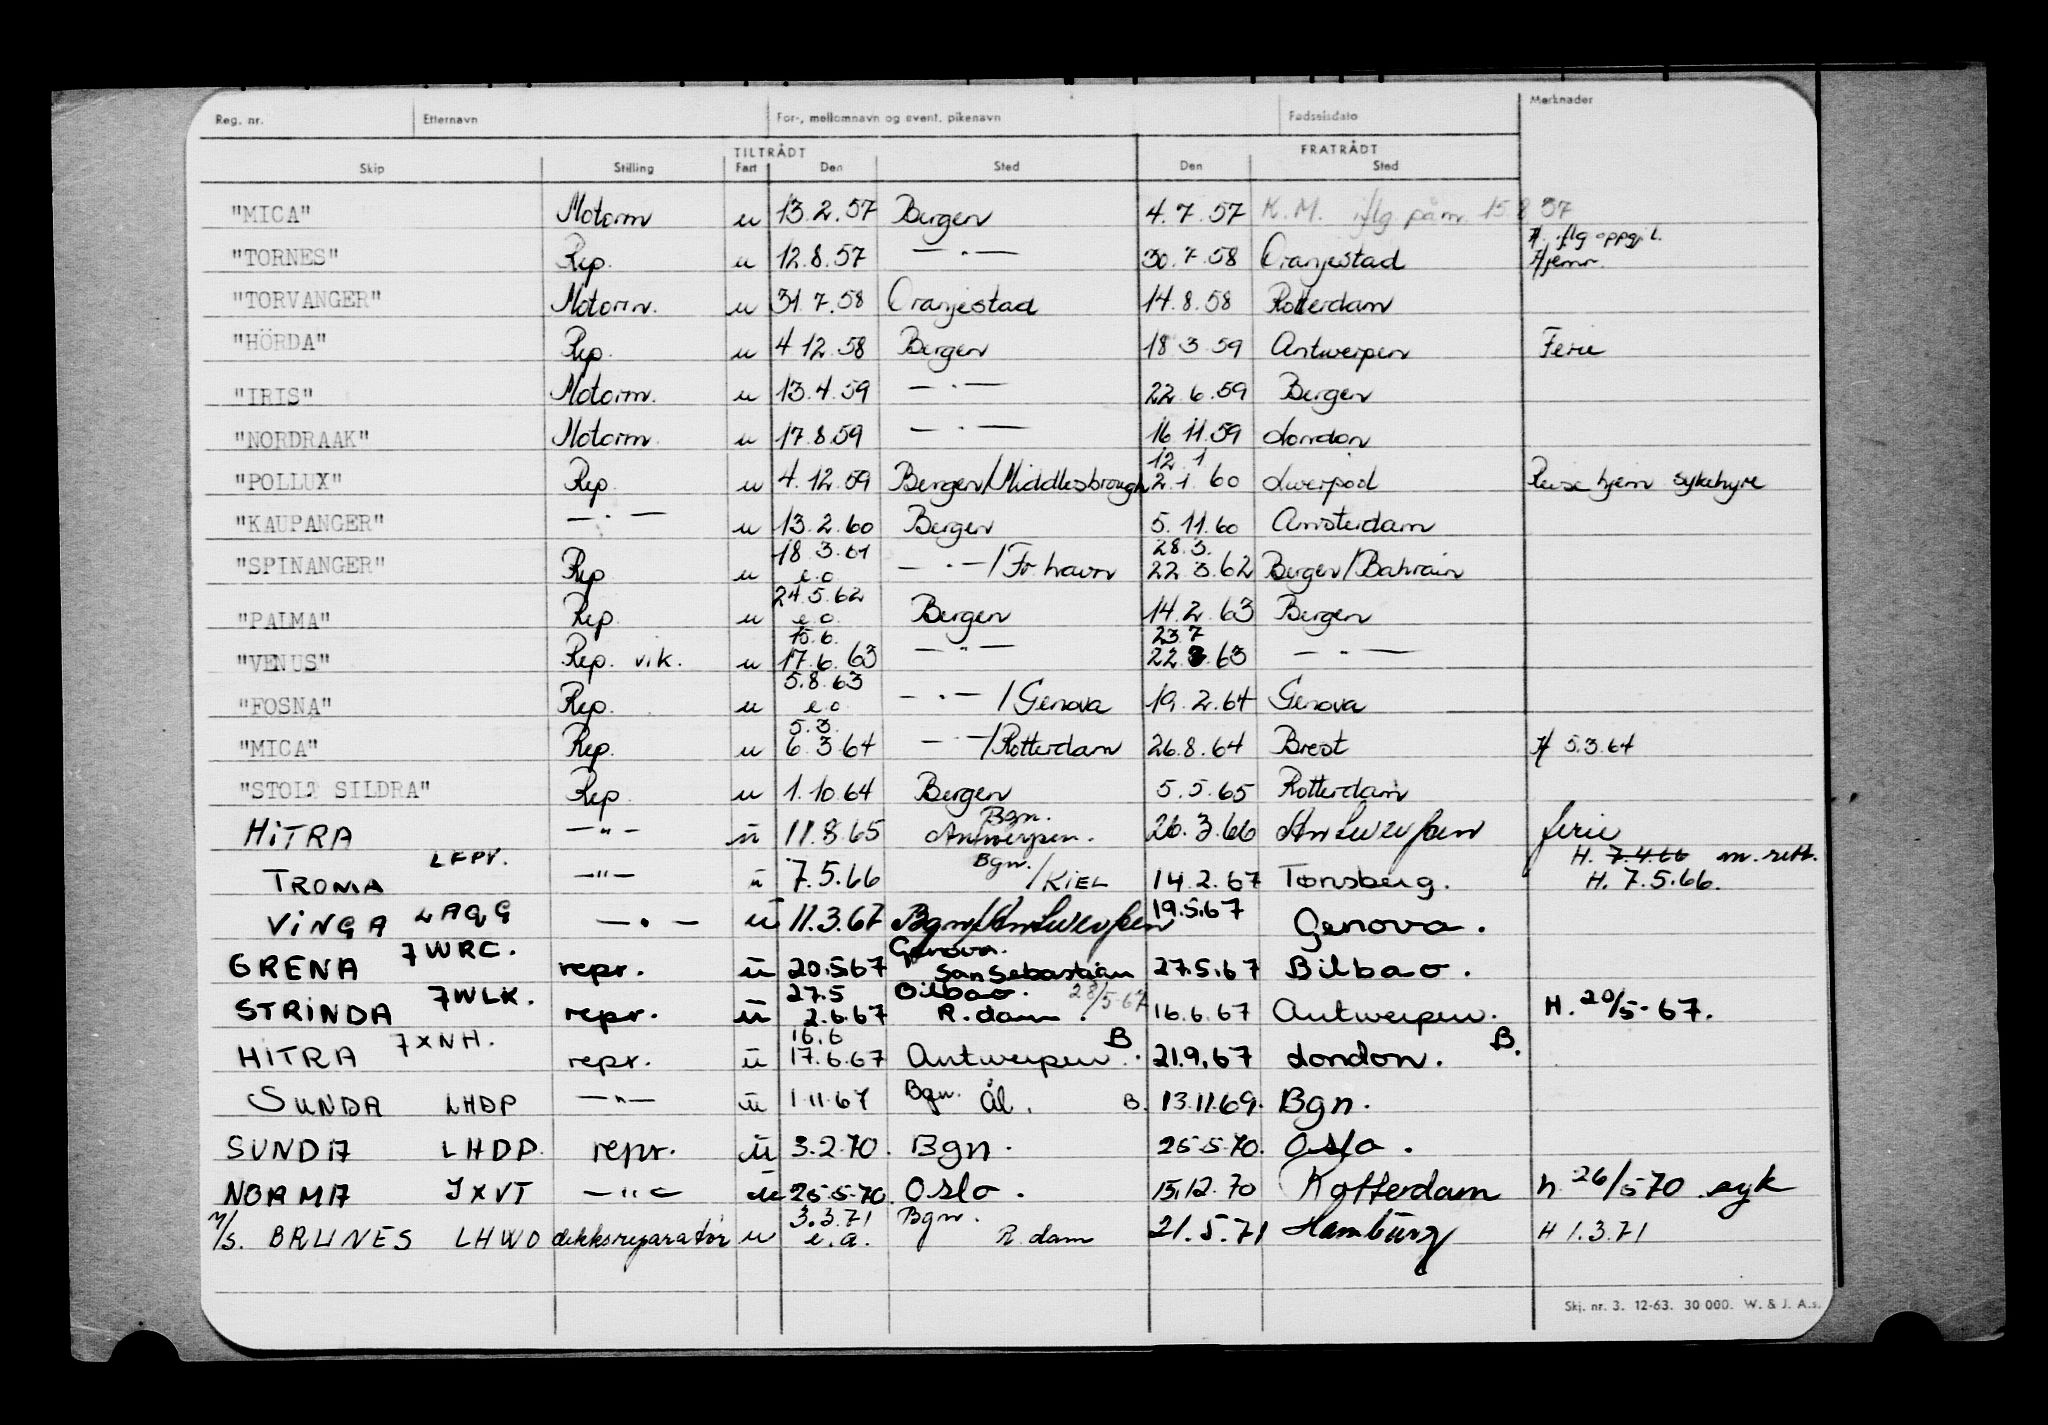 Reg. nr. Etternavn For-, mellomnavn og event. pikenavn Fødselsdato Merknader
TILTRÅDT FRATRÅDT
Skip Stilling Fart Den Sted Den Sted
"MICA" Motorm u 13.2.57 Bergen 4.7.57 K.M. iflg påm. 15.8.57
H. iflg oppgj l.
"TORNES" Rep. u 12.8.57 — . — 30.7.58 Oranjestad Hjemr.
"TORVANGER" Motorm. u 31.7.58 Oranjestad 14.8.58 Rotterdam
"HÖRDA" Rep. u 4 12.58 Bergen 18 3.59 Antwerpen Ferie
"IRIS" Motorm. u 13.4.59 — . — 22.6.59 Bergen
"NORDRAAK" Motorm. u 17.8.59 — . — 16 11.59 London
12.1
"POLLUX" Rep. u 4.12.59 Bergen/Middlesbrough 2.1.60 Liverpool Reise hjem sykehyre
"KAUPANGER" — . — u 13.2.60 Bergen 5.11.60 Amsterdam
18.3.61 28.3.
"SPINANGER" Rep u e.o — . — / Fr.havn 22 3.62 Bergen/Bahrain
24.5.62
"PALMA" Rep. u e.o. Bergen 14.2.63 Bergen
15.6. 23.7
"VENUS" Rep. vik. u 17.6.63 — " — 22 8.63 — . —
5.8.63
"FOSNA" Rep. u e.o — . — / Genova 19.2.64 Genova
5.3.
"MICA" Rep. u 6.3.64 — . — / Rotterdam 26.8.64 Brest H 5.3.64
"STOLT SILDRA" Rep. u 1.10.64 Bergen 5.5.65 Rotterdam
Bgn.
HiTRA — " — ü 11.8.65 Antwerpen. 26.3.66 Antwerpen ferie
LFPV. Bgn. H. 7.4.66 m. rett.
TROMA — " — ü 7.5.66 / KiEL 14.2.67 Tønsberg. H. 7.5.66.
ViNGA LAQG — . — ü 11.3.67 Bgn/Antwerpen 19.5.67 Genova.
7WRC. Genova.
GRENA repr. ü 20.5.67 San Sebastian 27.5.67 Bilbao.
7WLK. 27.5 Bilbao. 28/5-67
STRiNDA repr. ü 2.6.67 R.dam. 16.6.67 Antwerpen. H. 20/5-67.
7XNH. 16.6 B B.
HiTRA repr. ü 17.6.67 Antwerpen. 21.9.67 London.
SUNDA LHDP — " — ü 1.11.67 Bgn. Ål. B. 13.11.69. Bgn.
SUNDA LHDP. repr. ü 3.2.70. Bgn. 25-5-70. Oslo.
NORMA JXVT — " — ü 25-5-70. Oslo. 15.12.70 Rotterdam h 26/5-70 syk
3.3.71 Bgn.
M/S. BRUNES LHWO dekksreparatør u e.a. R.dam 21.5.71 Hamburg H 1.3.71
Skj. nr. 3. 12-63. 30 000. W. & J. A.s.